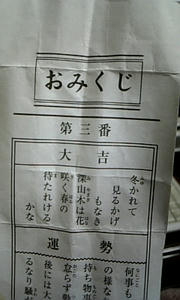 おみくじ
第三番
大吉
冬かれて
見るかげ
もなき
深山木は花
咲く春の
待たれける
かな
運勢
何事も
の様な
持ち物事
怠らず勢
後には大
るなり